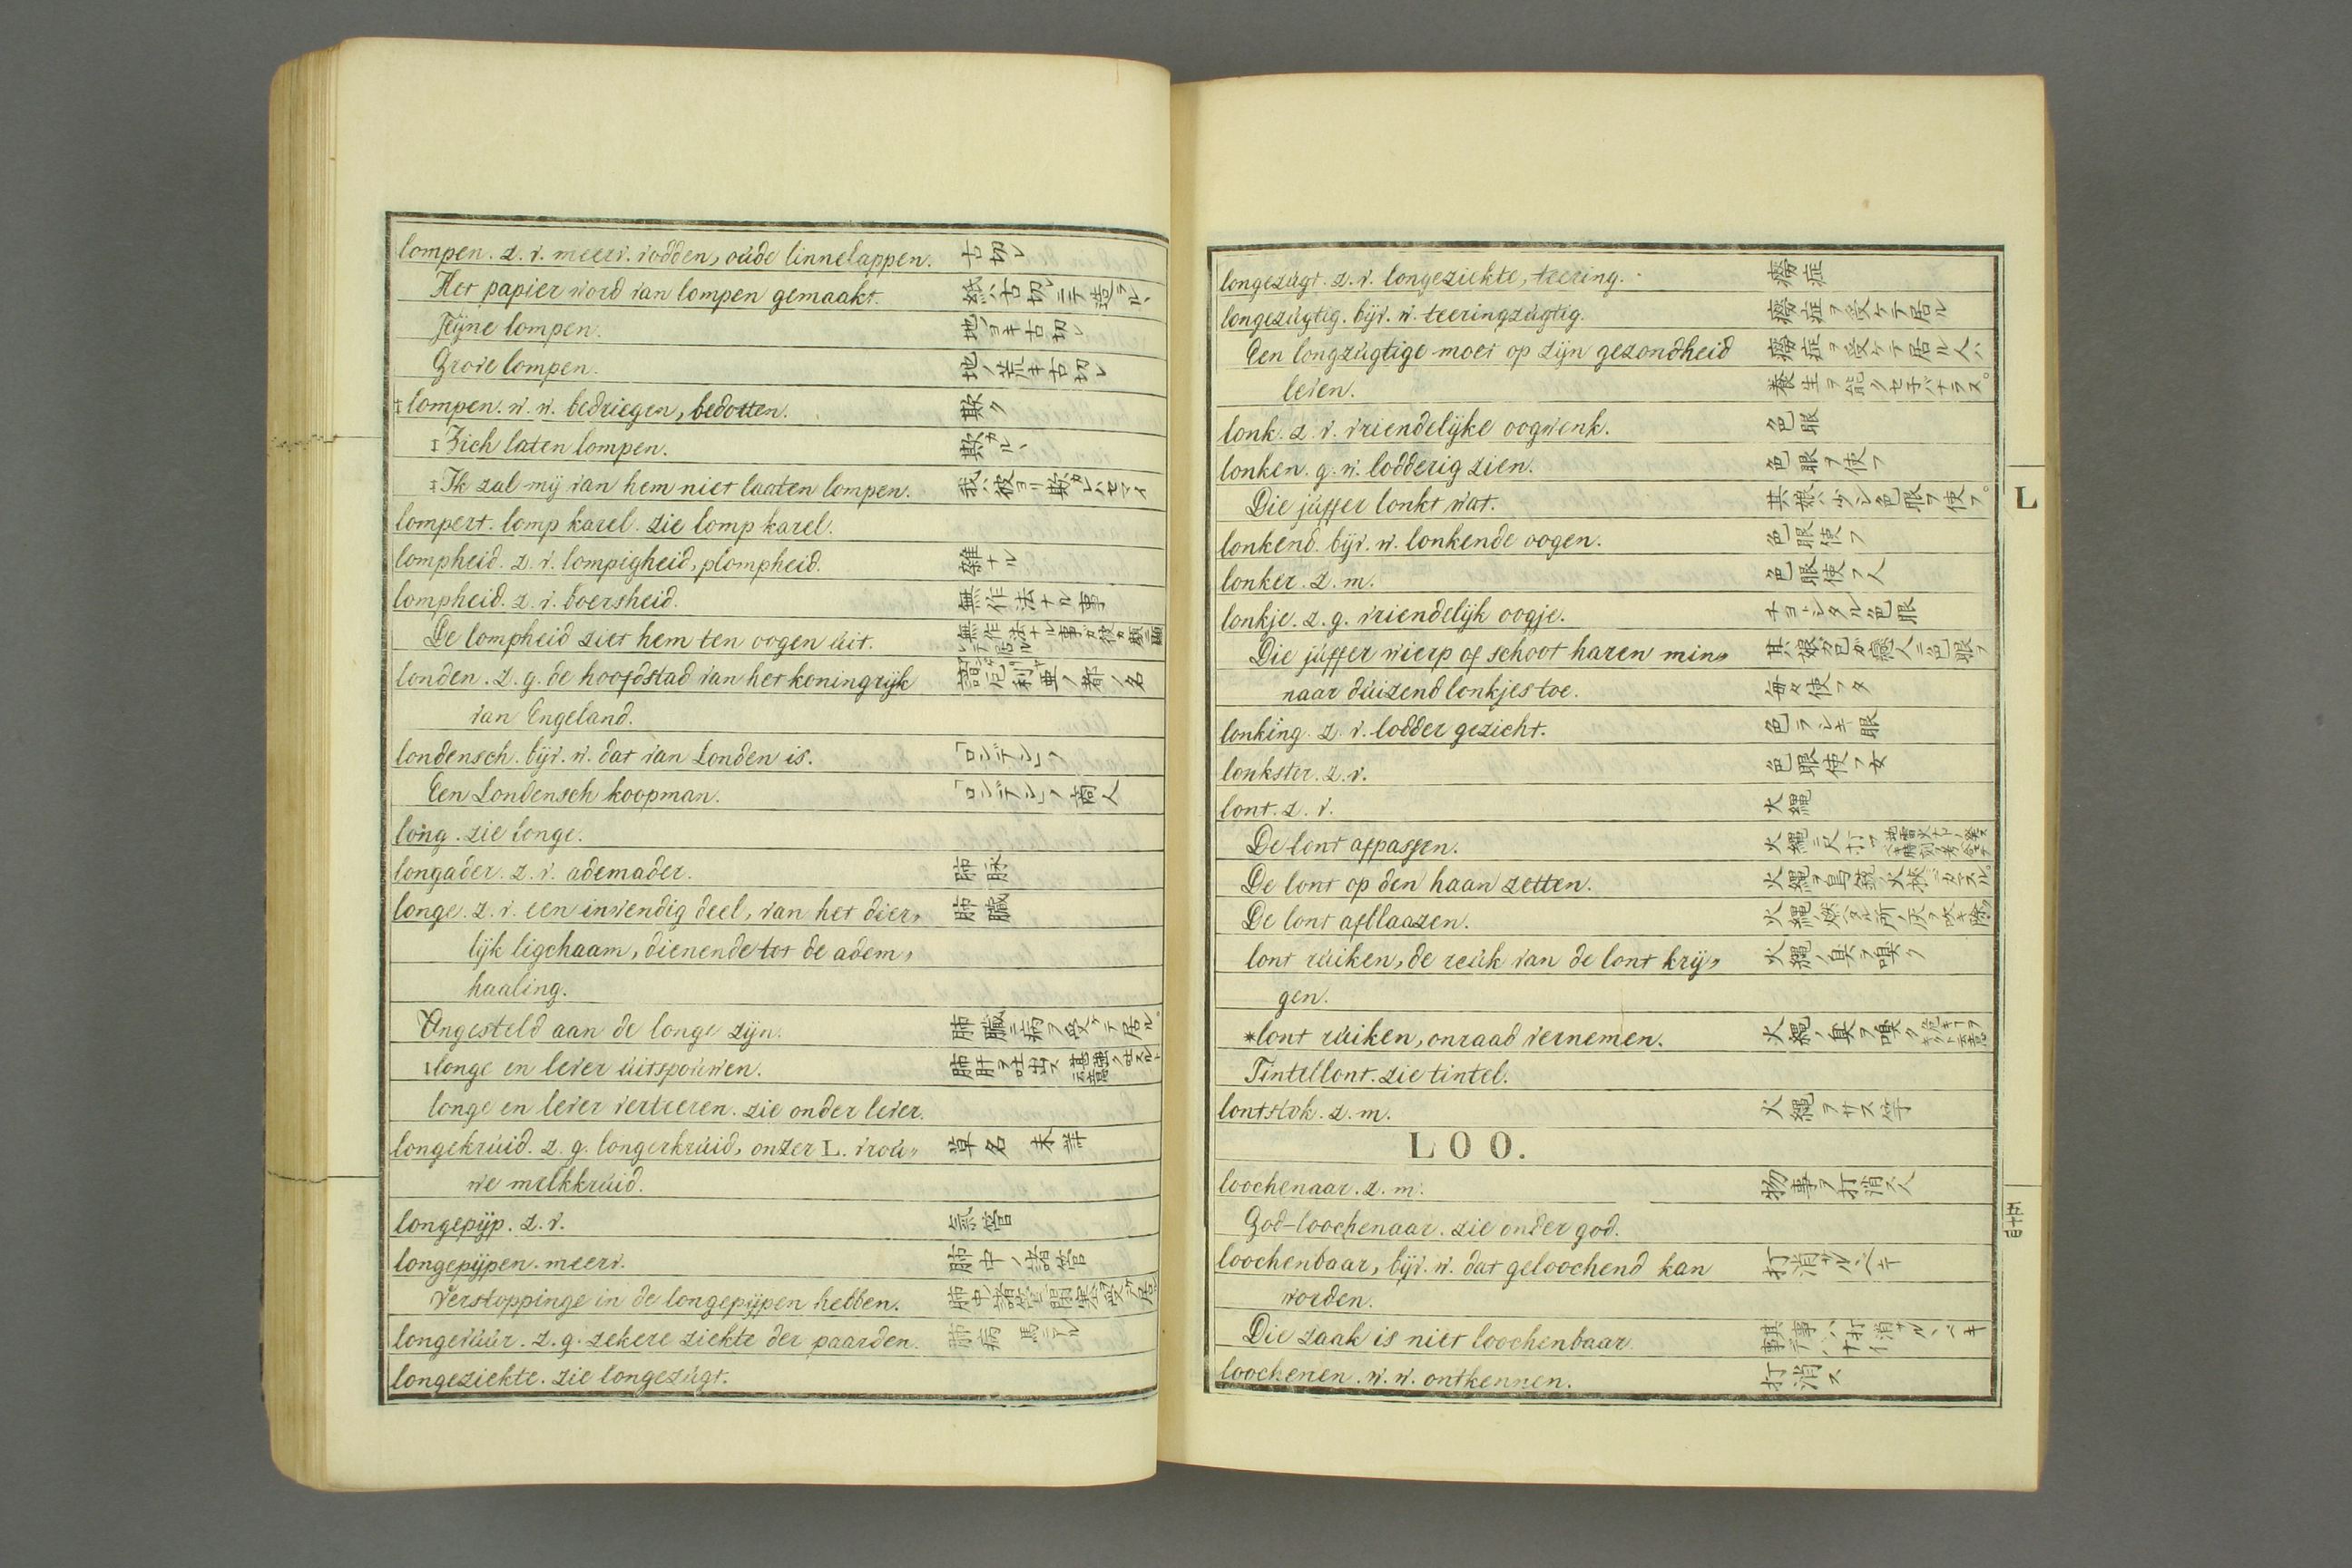 lompen. z. v. meerv. vodden, oude linnelappen. 古切レ
Het papier word van lompen gemaakt. 紙ハ古切レニテ造ラルヽ
Fijne lompen. 地ノヨキ古切レ
Grove lompen. 地ノ荒キ古切レ
‡lompen. w. w. bedriegen, bedotten. 欺ク
‡Zich laten lompen. 欺カルヽ
‡Ik zal mij van hem niet laaten lompen. 我ハ彼ヨリ欺カレハセマイ
lompert. lomp karel. zie lomp karel.
lompheid. z. v. lompigheid, plompheid. 雑ナル
lompheid. z. v. boersheid. 無作法ナル事
De lompheid ziet hem ten oogen uit. 無作法ナル事ガ彼ガ
londen. z. g. de hoofdstad van het koningrijk 諳厄利亜ノ都ノ名
van Engeland.
londensch. bijv. w. dat van Londen is. 「ロンデン」ノ
Een Londensch koopman. 「ロンデン」ノ商人
long. zie longe.
longader. z. v. ademader. 肺脉
longe. z. v. een inwendig deel, van het dier„ 肺臓
lijk ligchaam, dienende tot de adem„
haaling.
Ongesteld aan de longe zijn. 肺臓ニ病ヲ受ケテ居ル。
‡longe en lever uitspouwen. 肺肝ヲ吐出ス
longe en lever verteeren. zie onder lever.
longekruid. z. g. longerkruid, onzer L. vrou„ 草名 未詳
we melkkruid.
longepijp. z. v. 気管
longepijpen. meerv. 肺中ノ諸管
Verstoppinge in de longepijpen hebben. 肺中ノ諸管ニ閉塞ヲ受ケテ居ル
longevuur. z. g. zekere ziekte der paarden. 肺病 馬ニアル
longeziekte. zie longezugt.
longezugt. z. v. longeziekte, teering. 癆症
longezugtig. bijv. w. teeringzugtig. 癆症ヲ受ケテ居ル
Een longzugtige moet op zijn gezondheid 癆症ヲ受ケテ居ル人ハ
leven. 養生ヲ能クセ子バナラヌ。
lonk. z. v. vriendelijke oogwenk. 色眼
lonken. g. w. lodderig zien. 色眼ヲ使フ
Die juffer lonkt wat. 其娘ハ少シ色眼ヲ使フ。
lonkend. bijv. w. lonkende oogen. 色眼使フ
lonker. z. m. 色眼使フ人
lonkje. z. g. vriendelijk oogje. チョトシタル色眼
Die juffer wierp of schoot haren min„ 其娘ガ己ガ戀人ニ色眼ヲ
naar duizend lonkjes toe. 毎々使フタ
lonking. z. v. lodder gezicht. 色ラシキ眼
lonkster. z. v. 色眼使フ女
lont. z. v. 火縄
De lont afpassen. 火縄ニ尺ヲ打ツ
De lont op den haan zetten. 火縄ヲ鳥銃ノ火挾ニカマスル。
De lont afblaazen. 火縄ノ燃タル所ノ灰ヲ吹キ除ク
lont ruiken, de reuk van de lont krij„ 火縄ノ臭ヲ嗅ク
gen.
*lont ruiken, onraad vernemen. 火縄ノ臭ヲ嗅ク
Tintellont. zie tintel.
lontstok. z. m. 火縄ヲサス竿
LOO.
loochenaar. z. m. 物事ヲ打消ス人
God-loochenaar. zie onder god.
loochenbaar, bijv. w. dat geloochend kan 打消サルベキ
worden.
Die zaak is niet loochenbaar. 其事ハ打消サルベキ事デハナイ
loochenen. w. w. ontkennen. 打消ス
L
百十五